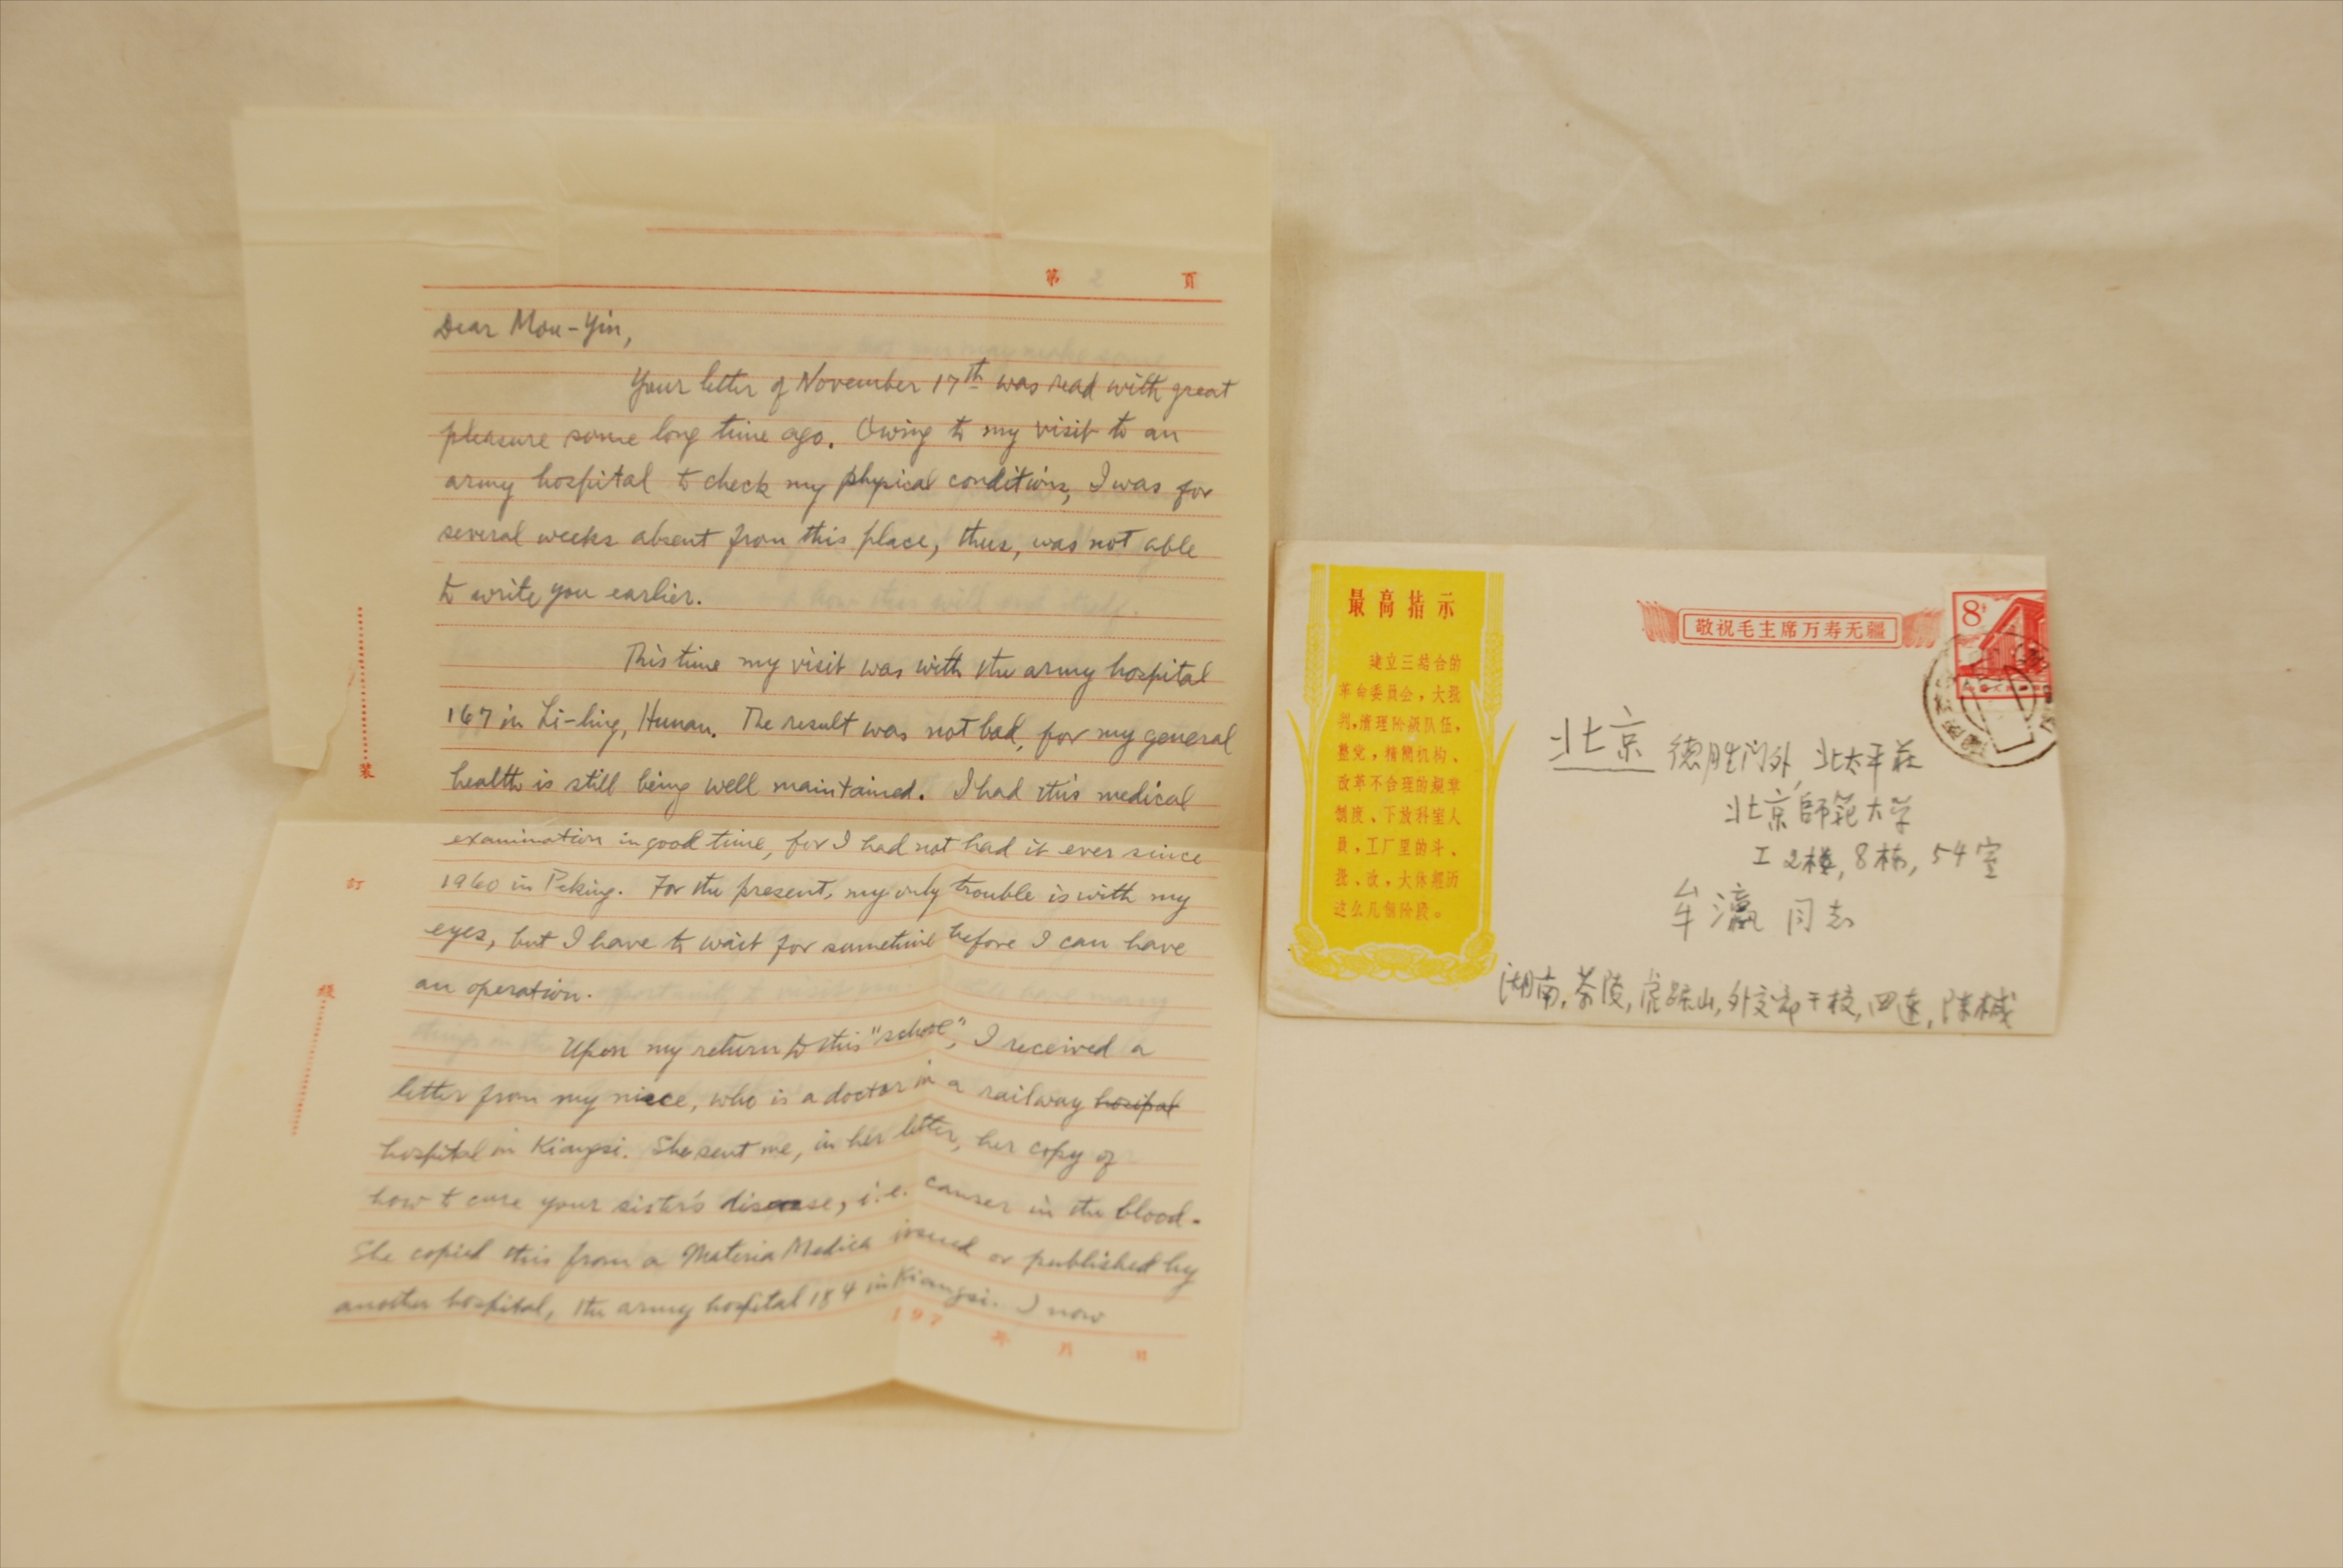 第 2 頁
Dear Mou-Yin,
Your letter of November 17th was read with great
pleasure some long time ago. Owing to my visit to an
army hospital to check my physical conditions, I was for
several weeks absent from this place, thus, was not able
to write you earlier.
This time my visit was with the army hospital
167 in Li-ling, Hunan. The result was not bad, for my general
health is still being well maintained. I had this medical
examination in good time, for I had not had it ever since
1960 in Peking. For the present, my only trouble is with my
eyes, but I have to wait for sometime before I can have
an operation.
Upon my return to this "school", I received a
letter from my niece, who is a doctor in a railway hosipal
hospital in Kiangsi. She sent me, in her letter, her copy of
how to cure your sister's disease, i.e. canser in the blood.
She copied this from a Materia Medica issued or published by
another hospital, the army hospital 184 in Kiangsi. I now
197 年 月 日
装
訂
綫
最高指示
建立三结合的
革命委员会，大批
判，清理阶级队伍，
整党，精简机构、
改革不合理的规章
制度、下放科室人
员，工厂里的斗、
批、改，大体经历
这么几个阶段。
敬祝毛主席万寿无疆
8分
北京 德胜门外，北太平莊
北京師範大学
工2楼，8栋，54室
牟瀛 同志
湖南，茶陵，虎踞山，外交部干校，四连，陳棫